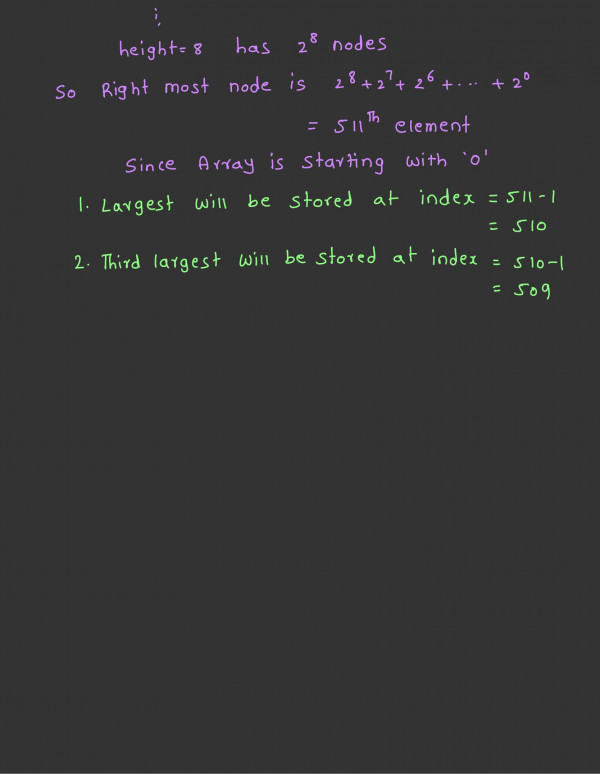 height=8 has 2⁸ nodes
So Right most node is 2⁸+2⁷+2⁶+... +2⁰
= 511ᵀʰ element
Since Array is starting with '0'
1. Largest will be stored at index = 511-1
= 510
2. Third largest will be stored at index = 510-1
= 509